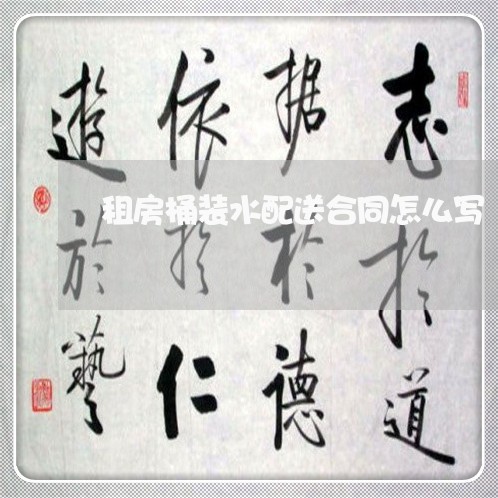 志於道
据於德
依於仁
遊於藝
租房桶装水配送合同怎么写